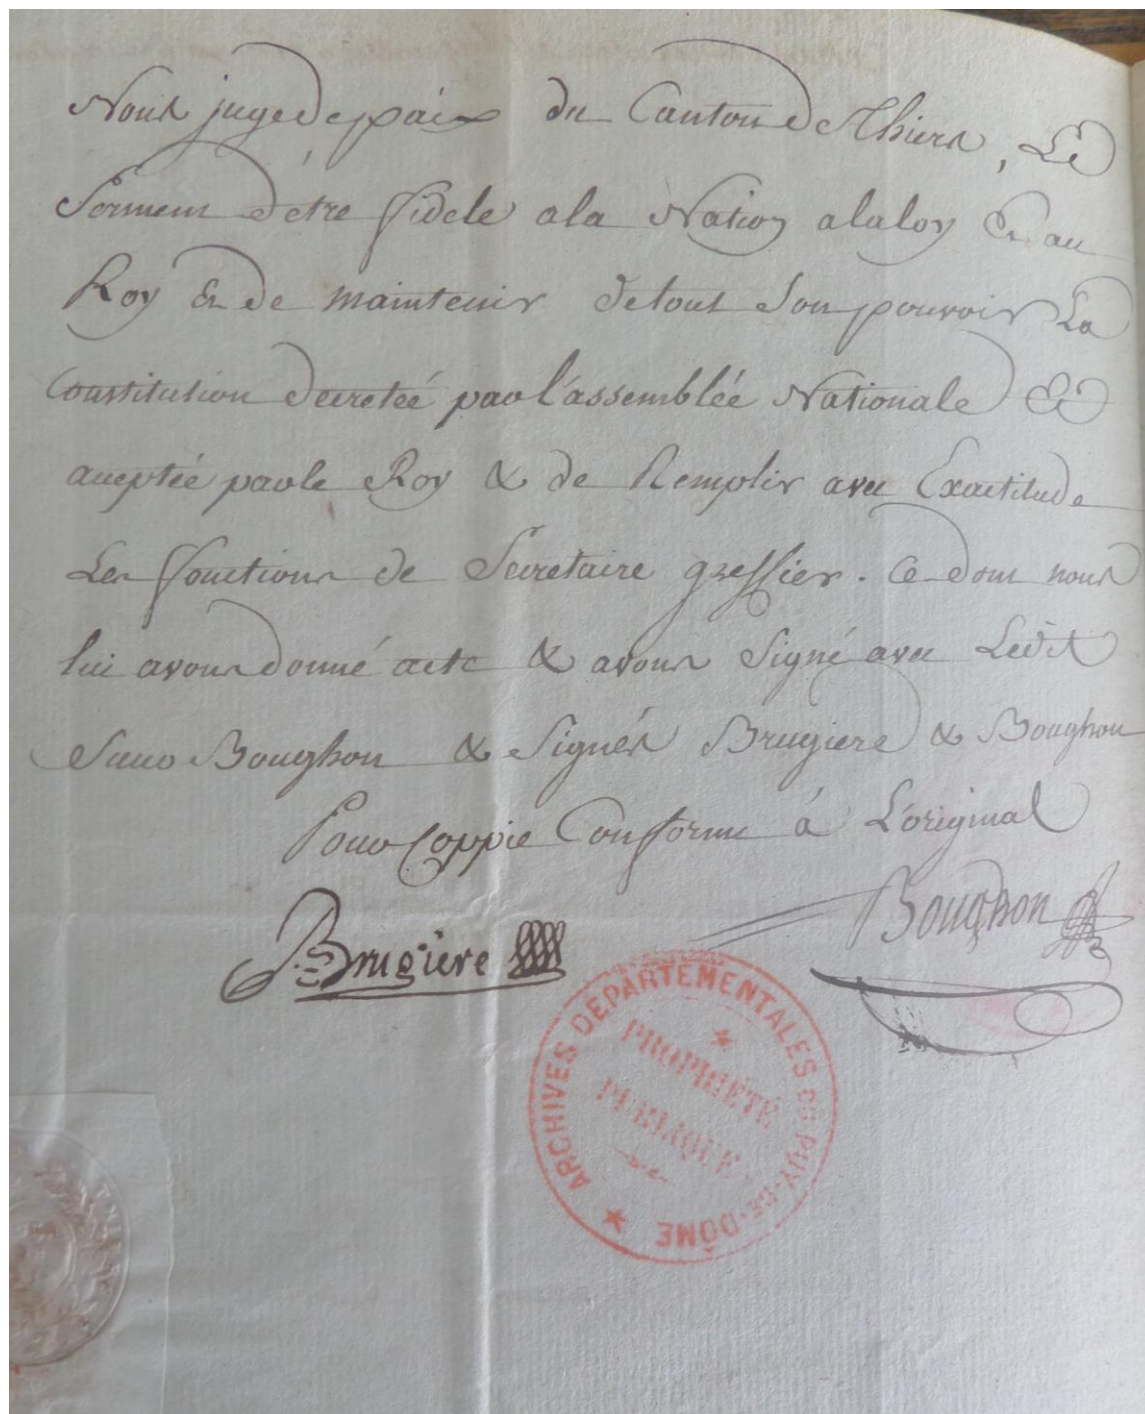 Nous juge de paix du Canton de Thiers, Le
Serment d'étre fidele a la Nation a la loy Et au
Roy Et de maintenir de tout Son pouvoir La
Constitution decretée par l'assemblée Nationale Et
acceptée par le Roy & de Remplir avec Exactitude
Les fonctions de Secretaire greffier. Ce dont nous
lui avons donné acte & avons Signé avec Ledit
Sieur Boughon & Signés Brugiere & Boughon
Pour Coppie Conforme á L'original
Brugière
Boughon
ARCHIVES DÉPARTEMENTALES DU PUY-DE-DÔME
PROPRIÉTÉ
PUBLIQUE